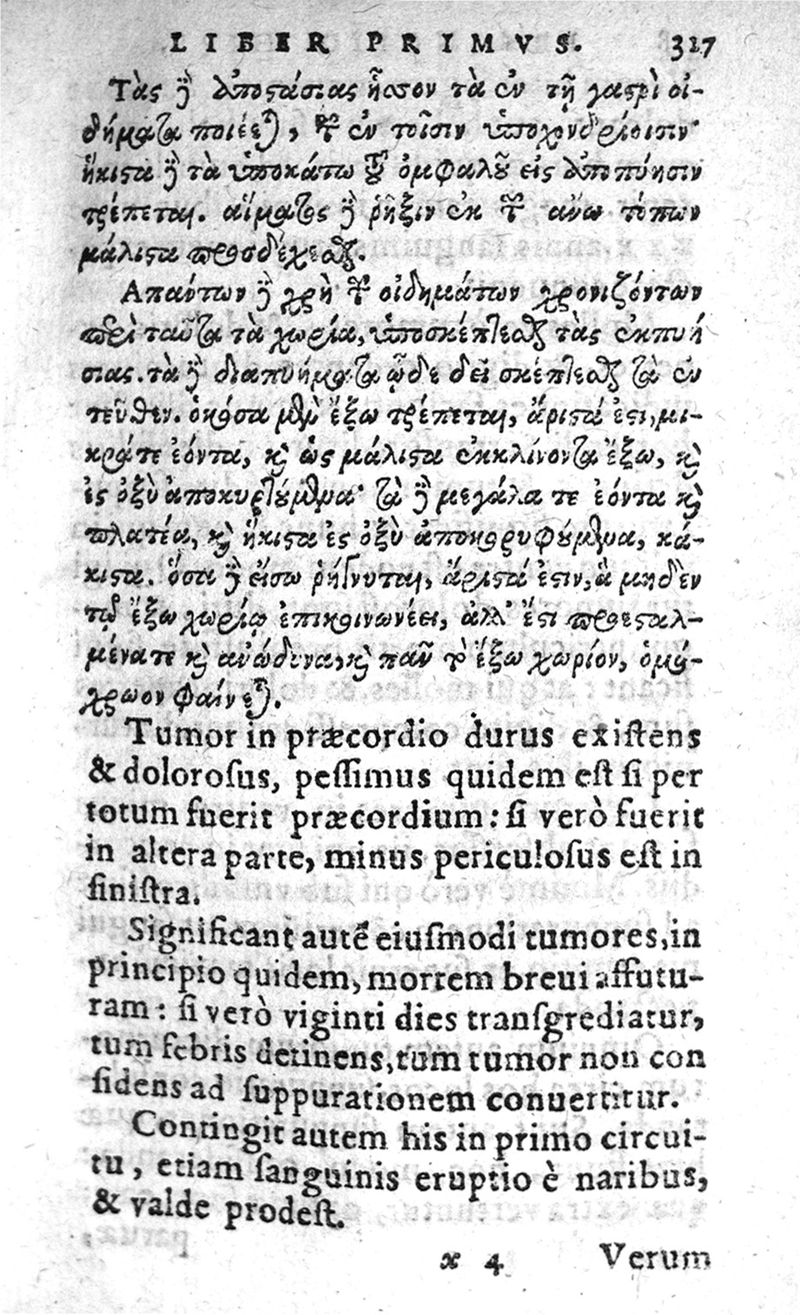 LIBER PRIMVS. 317
Τὰς δὲ ἀποστάσιας ἧσσον τὰ ἐν τῇ γαστρὶ οἰ-
δήματα ποιέεται, καὶ ἐν τοῖσιν ὑποχονδρίοισιν·
ἥκιστα δὲ τὰ ὑποκάτω τοῦ ὀμφαλοῦ εἰς ἀποπύησιν
τρέπεται. αἵματος δὲ ῥῆξιν ἐκ τῶν ἄνω τόπων
μάλιστα προσδέχεσθαι.
Απάντων δὲ χρὴ τῶν οἰδημάτων χρονιζόντων
περὶ ταῦτα τὰ χωρία, ὑποσκέπτεσθαι τὰς ἐκπυή
σιας. τὰ δὲ διαπυήματα ὧδε δεῖ σκέπτεσθαι τὰ ἐν
τεῦθεν. ὁκόσα μὲν ἔξω τρέπεται, ἄριστά ἐστι, μι-
κράτε ἐόντα, καὶ ὡς μάλιστα ἐκκλίνοντα ἔξω, καὶ
ἐς ὀξὺ ἀποκυρτούμενα· τὰ δὲ μεγάλα τε ἐόντα καὶ
πλατέα, καὶ ἥκιστα ἐς ὀξὺ ἀποκορυφούμενα, κά-
κιστα. ὅσα δὲ εἴσω ῥήγνυται, ἄριστά ἐστιν, ἃ μηδὲν
τῷ ἔξω χωρίῳ ἐπικοινωνέει, ἀλλ' ἔστι προεσταλ-
μένατε καὶ ἀνώδυνα, καὶ πᾶν τὸ ἔξω χωρίον, ὁμό-
χροον φαίνεται.
Tumor in præcordio durus existens
& dolorosus, pessimus quidem est si per
totum fuerit præcordium: si verò fuerit
in altera parte, minus periculosus est in
sinistra.
Significant autẽ eiusmodi tumores, in
principio quidem, mortem breui affutu-
ram: si verò viginti dies transgrediatur,
tum febris detinens, tum tumor non con
sidens ad suppurationem conuertitur.
Contingit autem his in primo circui-
tu, etiam sanguinis eruptio è naribus,
& valde prodest.
x 4 Verum